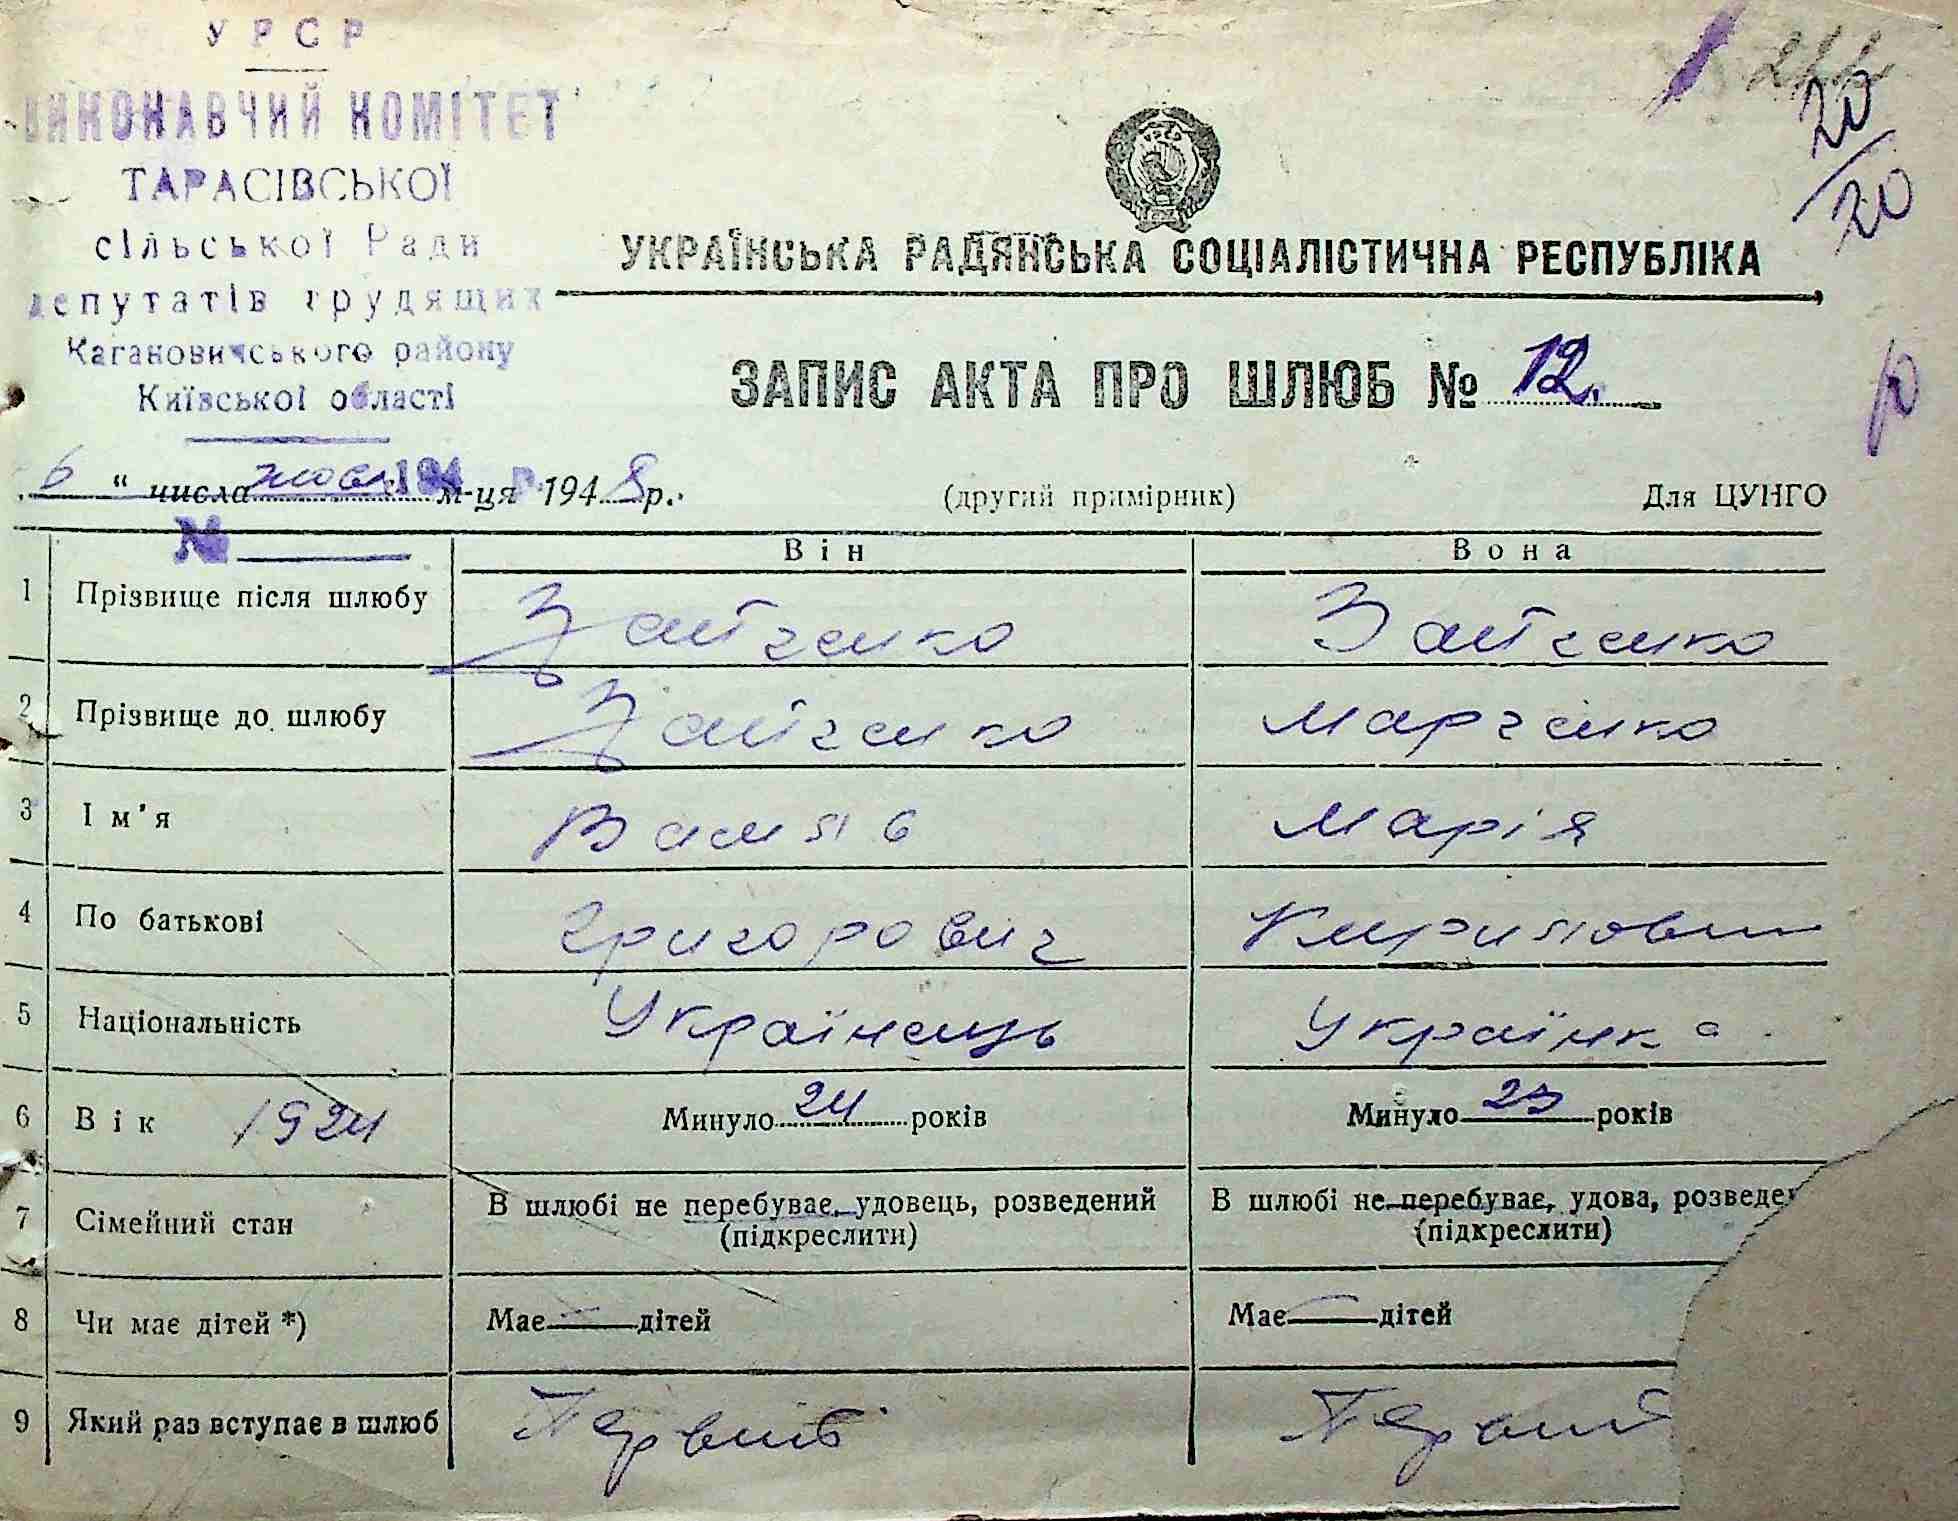 УРСР
ВИКОНАВЧИЙ КОМІТЕТ
ТАРАСІВСЬКОЇ
сільської Ради
депутатів трудящих
Кагановичського району
Київської області
УРСР
20
20
УКРАЇНСЬКА РАДЯНСЬКА СОЦІАЛІСТИЧНА РЕСПУБЛІКА
ЗАПИС АКТА ПРО ШЛЮБ № 12.
6 " числа жовт 194 м-ця р. 1948 р.
(другий примірник)
Для ЦУНГО
№
Він Вона
1 Прізвище після шлюбу Зайченко Зайченко
2 Прізвище до шлюбу Зайченко Марченко
3 Ім'я Василь Марія
4 По батькові Григорович Кирилівн
5 Національність Українець Українка
6 Вік 1924 Минуло 24 років Минуло 23 років
7 Сімейний стан В шлюбі не перебуває, удовець, розведений В шлюбі не перебуває, удова, розведе
(підкреслити) (підкреслити)
8 Чи має дітей *) Має — дітей Має — дітей
9 Який раз вступає в шлюб Первий Первий